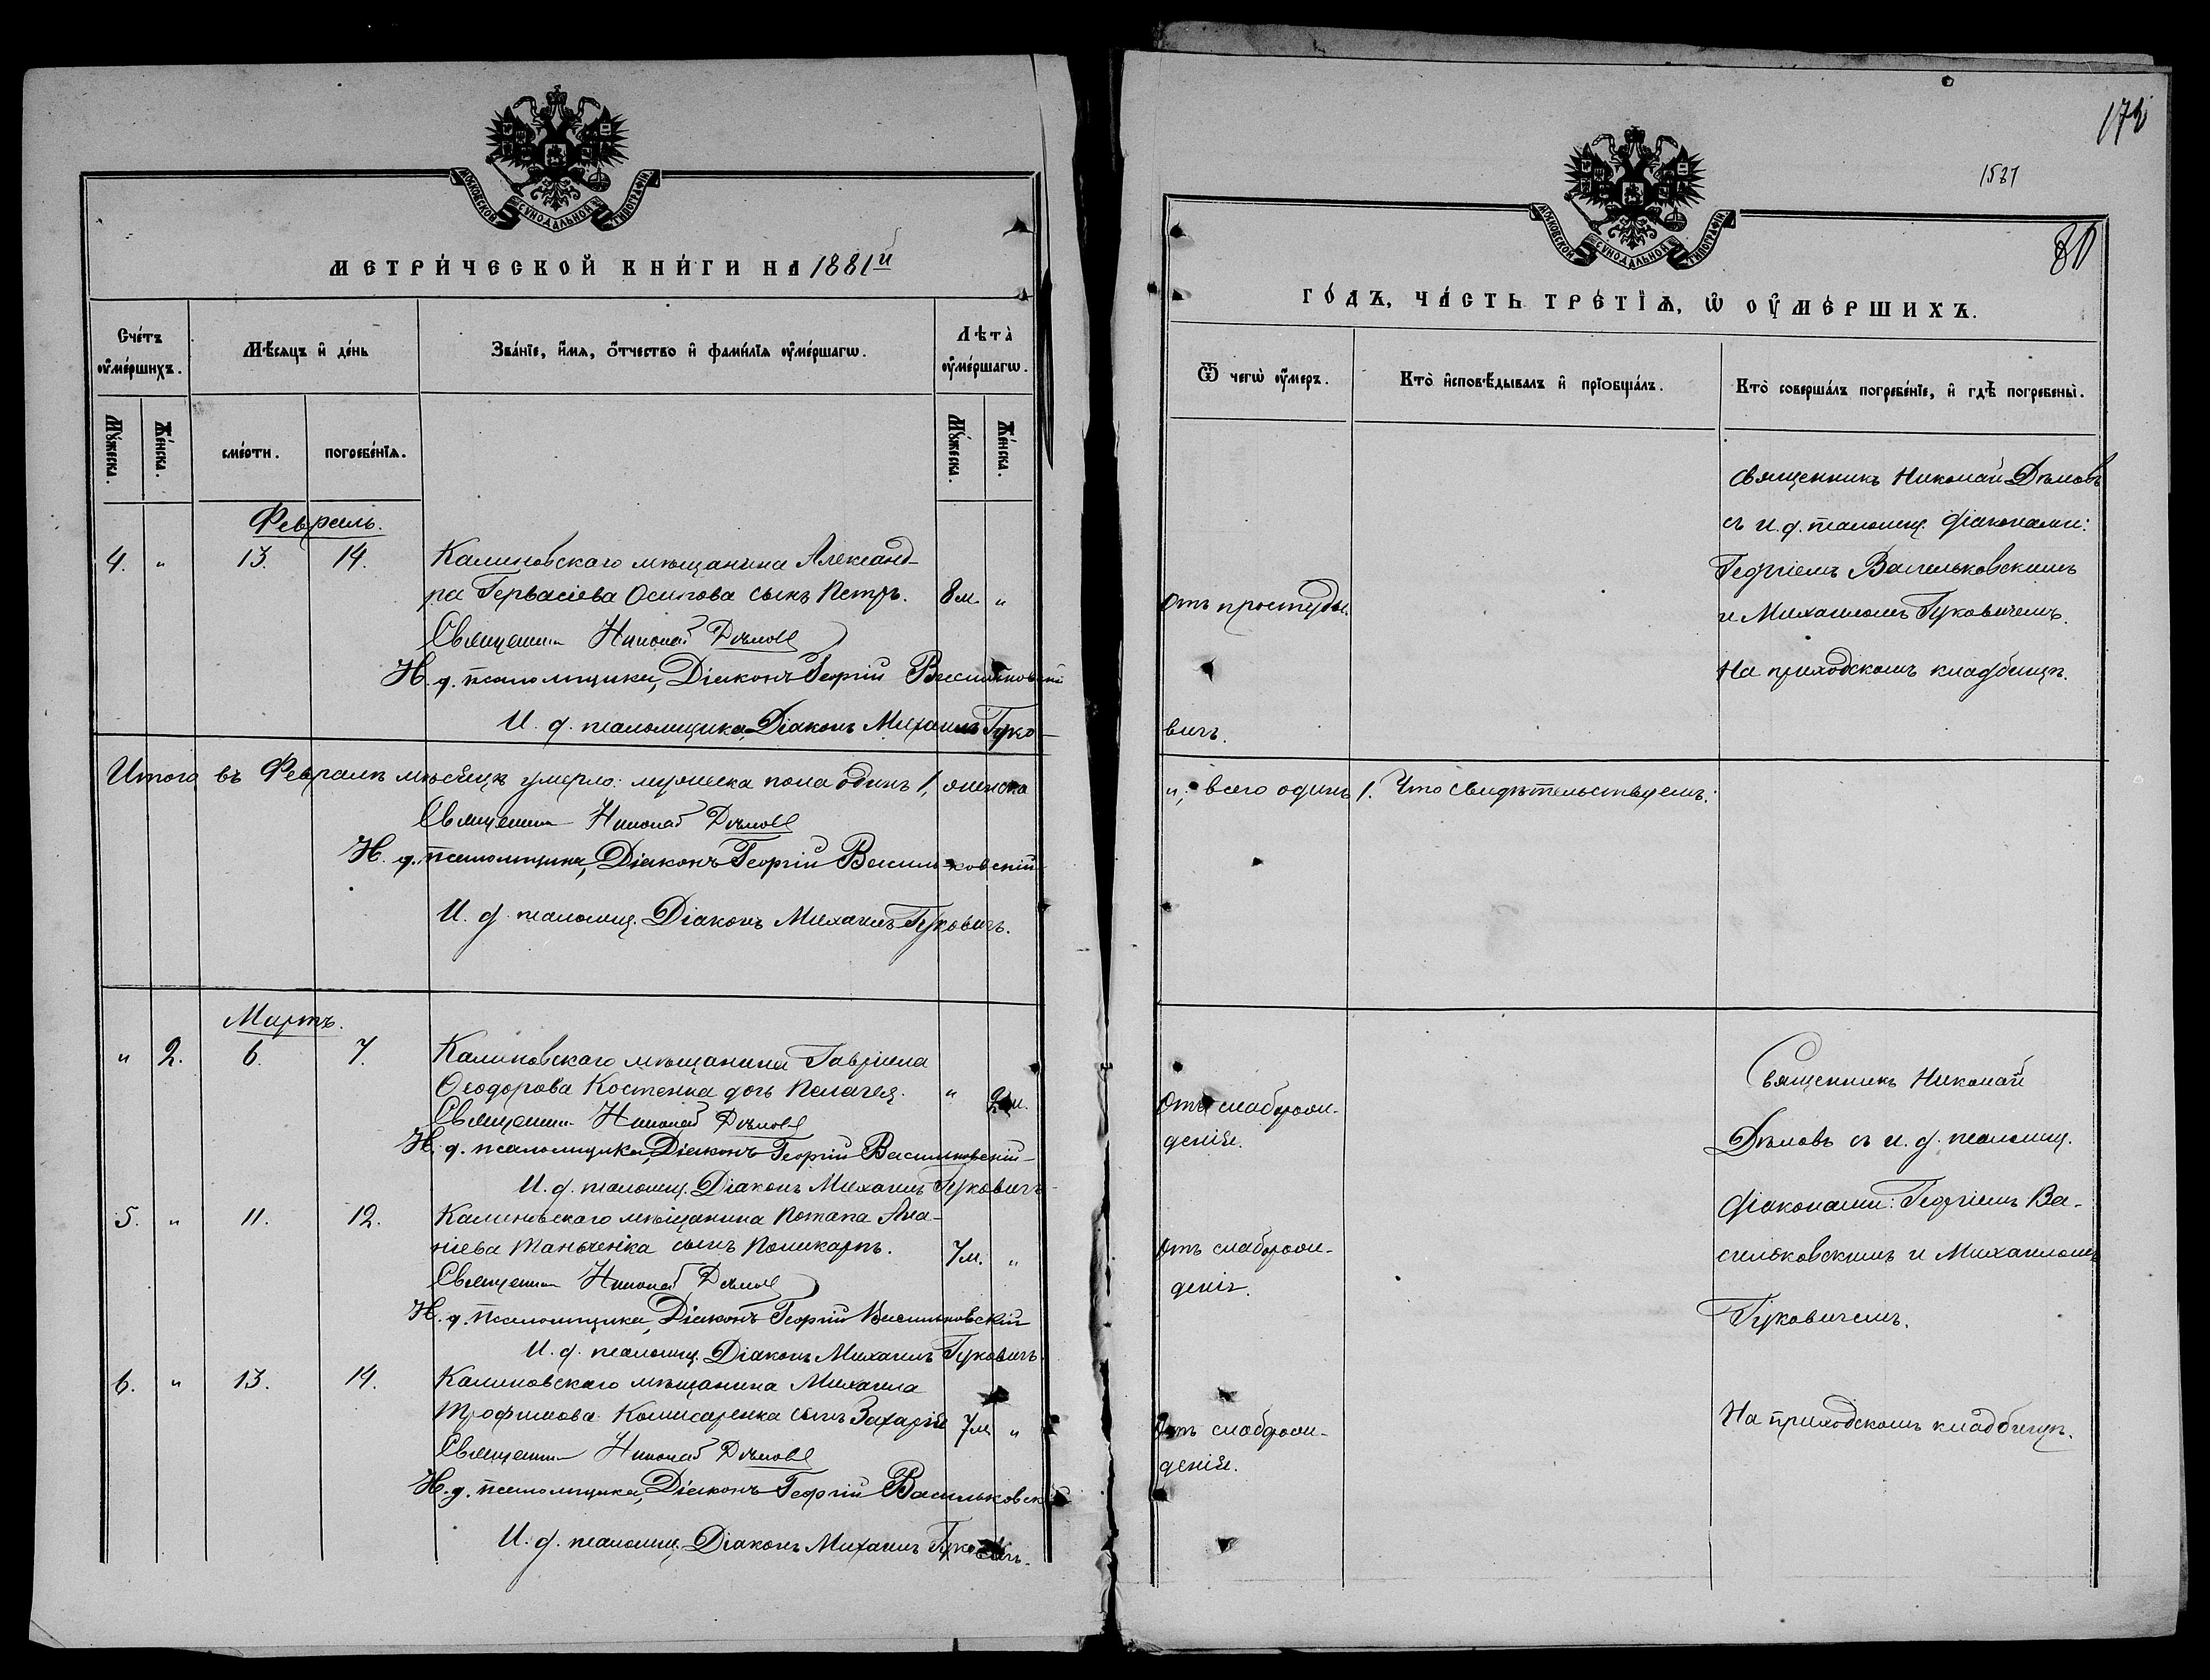 МОСКОВСКОЙ СУНОДАЛЬНОЙ ТИПОГРАФІИ
МЕТРИ́ЧЕСКОЙ КНИ́ГИ НА 1881й
Сче́тъ ᲂу҆ме́ршихъ.
Мѣ́сяцъ и҆ де́нь
Зва́нїе, и҆́мѧ, ѻ҆́тчество и҆ фами́лїѧ ᲂу҆ме́ршагѡ.
Лѣ́та ᲂу҆ме́ршагѡ.
Мꙋ́жеска.
Же́нска.
сме́рти.
погребе́нїѧ.
Мꙋ́жеска.
Же́нска.
Февраль.
4. " 13. 14. Калиновскаго мѣщанина Александ-
ра Гервасіева Осипова сынъ Петръ. 8 м. "
Священникъ Николай Дѣмовъ
И. д. псаломщика, Діаконъ Георгій Васильковскій
И. д. псаломщика, Діаконъ Михаилъ Гуко-
Итого въ Февралѣ мѣсяцѣ умерло: мужеска пола одинъ 1, женска
Священникъ Николай Дѣмовъ
И. д. псаломщика, Діаконъ Георгій Васильковскій
И. д. псаломщ. Діаконъ Михаилъ Гуковичъ.
Мартъ.
" 2. 6. 7. Калиновскаго мѣщанина Гавріила
Ѳеодорова Костенка дочь Пелагея. " 2 м.
Священникъ Николай Дѣмовъ
И. д. псаломщика, Діаконъ Георгій Васильковскій
И. д. псаломщ. Діаконъ Михаилъ Гуковичъ
5. " 11. 12. Калиновскаго мѣщанина Потапа Ана-
ніева Маньченка сынъ Поликарпъ. 7 м. "
Священникъ Николай Дѣмовъ
И. д. псаломщика, Діаконъ Георгій Васильковскій
И. д. псаломщ. Діаконъ Михаилъ Гуковичъ.
6. " 13. 14. Калиновскаго мѣщанина Михаила
Трофимова Комисаренка сынъ Захарій 7 м. "
Священникъ Николай Дѣмовъ
И. д. псаломщика, Діаконъ Георгій Васильковскій
И. д. псаломщ. Діаконъ Михаилъ Гуковичъ.
80
МОСКОВСКОЙ СУНОДАЛЬНОЙ ТИПОГРАФІИ
ГО́ДЪ, ЧА́СТЬ ТРЕ́ТЇѦ, Ѡ҆ ОУ҆МЕ́РШИХЪ.
Ѿ чегѡ̀ ᲂу҆́меръ.
Кто̀ и҆сповѣ́дывалъ и҆ прїѡбща́лъ.
Кто̀ соверша́лъ погребе́нїе, и҆ гдѣ̀ погребены̀.
Священникъ Николай Дѣмовъ
съ и. д. псаломщ. діаконами:
Георгіемъ Васильковскимъ
Отъ простуды.
и Михаиломъ Гуковичемъ.
На приходскомъ кладбищѣ.
вичъ.
"; всего одинъ 1. Что свидѣтельствуемъ:
Священникъ Николай
Отъ слаборож-
денія.
Дѣмовъ съ и. д. псаломщ.
діаконами: Георгіемъ Ва-
Отъ слаборож-
сильковскимъ и Михаиломъ
денія.
Гуковичемъ.
На приходскомъ кладбищѣ.
Отъ слаборож-
денія.